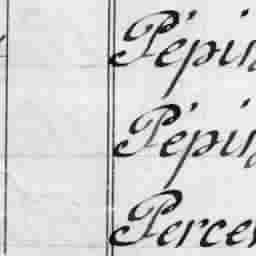 Pépin
Pépin
Percer